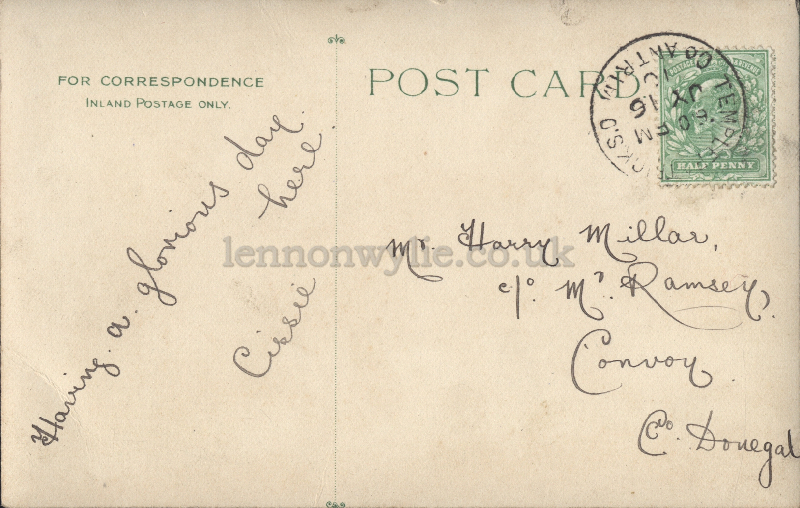 FOR CORRESPONDENCE
INLAND POSTAGE ONLY.
Having a glorious day
here.
Cissie
POST CARD
TEMPLEPATRICK S.O
CO ANTRIM
5.0 PM
JY 16
HALF PENNY
Mr. Harry Millar,
c/o. Mrs. Ramsey,
Convoy
Co. Donegal
lennonwylie.co.uk